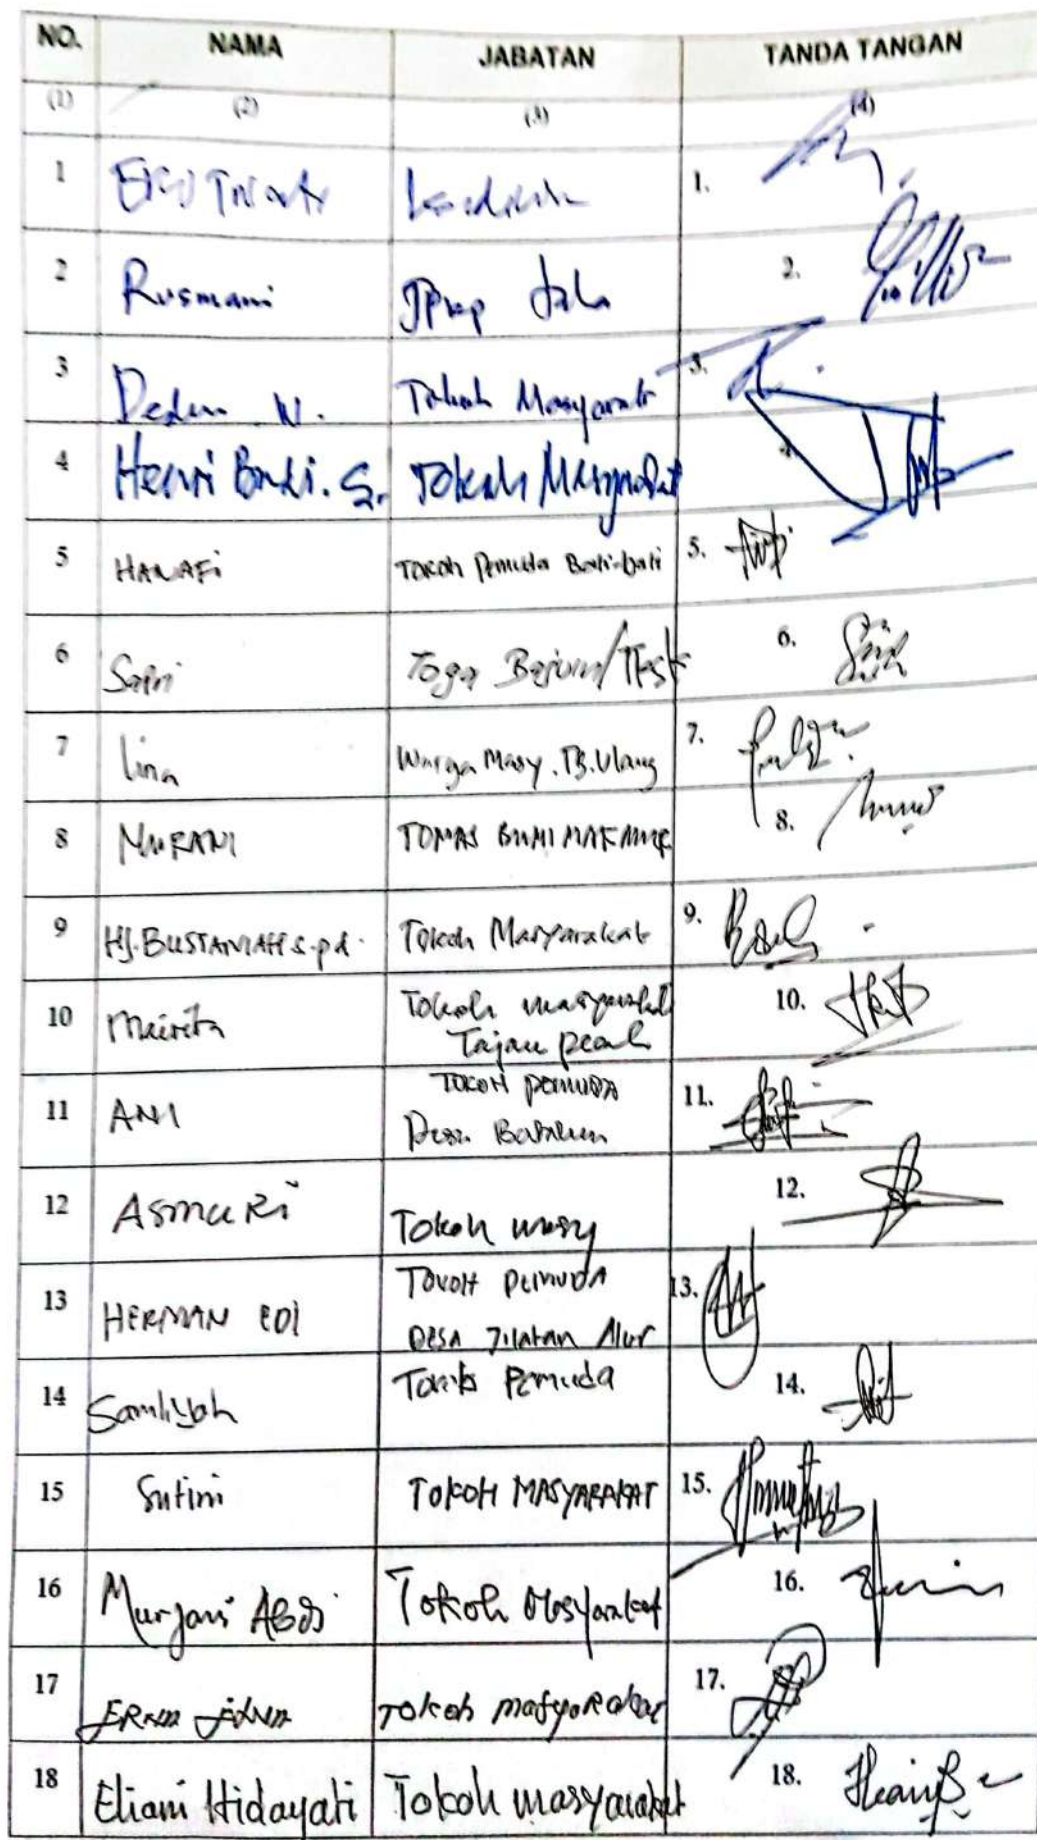 NO. NAMA JABATAN TANDA TANGAN
(1) (2) (3) (4)
1 1.
2 Rusmani 2.
3 Tokoh Masyarakat 3.
4 Henri Budi. S. Tokoh Masyarakat 4.
5 HANAFi TOKOh Pemuda Bati-bati 5.
6 Sapri Toga 6.
7 Lina Warga Masy. Tb. Ulang 7.
8 MURANI TOMAS BUMI MAKMUR 8.
9 HJ. BUSTANIAH S.pd. Tokoh Masyarakat 9.
10 Meirita Tokoh masyarakat 10.
Tajau pecah
11 ANI TOKOH PEMUDA 11.
Desa
12 ASMURi Tokoh masy 12.
13 HERMAN EDI TOKOH PEMUDA 13.
DESA Jilatan Alur
14 Samliyah Pemuda 14.
15 Sutini TOKOH MASYARAKAT 15.
16 Murjani Abdi Tokoh Masyarakat 16.
17 Tokoh masyarakat 17.
18 Eliani Hidayati Tokoh masyarakat 18.